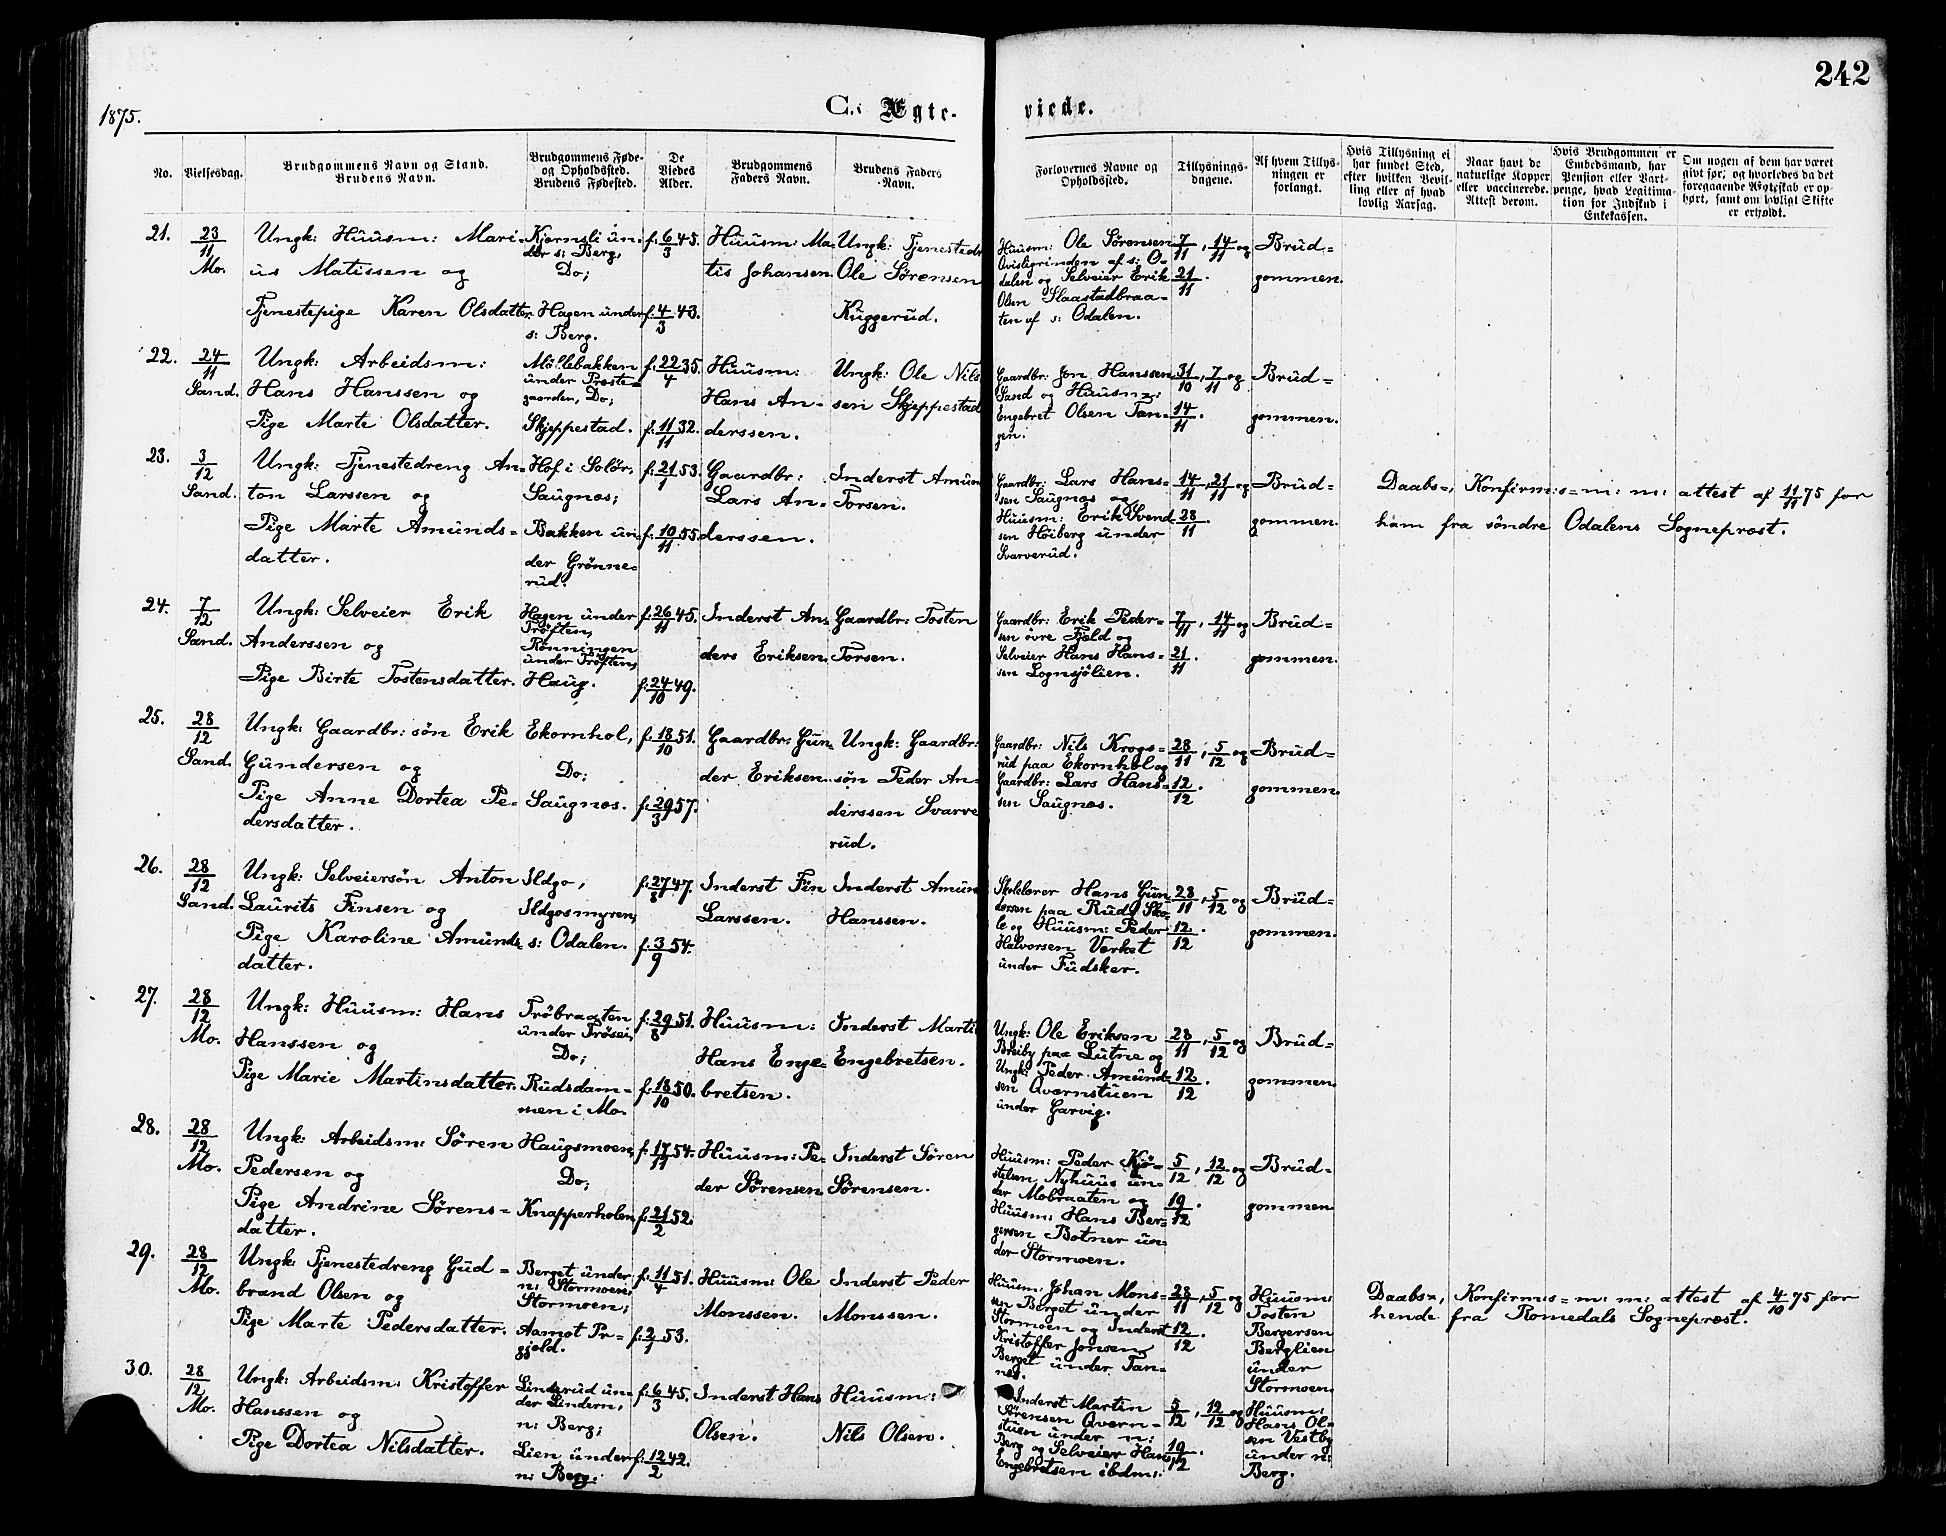 242
1875.
C.: Ægte-
viede.
No.
Vielsesdag.
Brudgommens Navn og Stand.
Brudens Navn.
Brudgommens Føde-
og Opholdssted.
Brudens Fødested.
De
Viedes
Alder.
Brudgommens
Faders Navn.
Brudens Faders
Navn.
Forlovernes Navne og
Opholdssted.
Tillysnings-
dagene.
Af hvem Tillys-
ningen er
forlangt.
Hvis Tillysning ei
har fundet Sted,
efter hvilken Bevil-
ling eller af hvad
lovlig Aarsag.
Naar havt de
naturlige Kopper
eller vaccinerede.
Attest derom.
Hvis Brudgommen er
Embedsmand, har
Pension eller Vart-
penge, hvad Legitima-
tion for Indskud i
Enkekassen.
Om nogen af dem har været
givt før, og hvorledes da det
foregaaende Ægteskab er op-
hørt, samt om lovligt Skifte
er erholdt.
21.
23/11
Mo.
Ungk: Huusm: Mari-
us Matissen og
Tjenestepige Karen Olsdatter.
Kjernsli un-
der s: Berg,
Do;
Hagen under
s: Berg.
f. 6/3 45.
f. 4/3 43.
Huusm: Ma-
tis Johansen
Ungk: Tjenestedr
Ole Sørensen
Kuggerud.
Huusm: Ole Sørensen
Qvisligrinden af s: O-
dalen og Selveier Erik
Olsen Slaastadbraa-
ten af s: Odalen.
7/11, 14/11 og
21/11.
Brud=
gommen.
22.
24/11
Sand.
Ungk: Arbeidsm:
Hans Hanssen og
Pige Marte Olsdatter.
Møllebakken
under Præste=
gaarden, Do;
Skjeppestad.
f. 22/4 35.
f. 11/11 32.
Huusm:
Hans An-
derssen.
Ungk: Ole Nils
sen Skjeppestad
Gaardbr: Jon Hanssen
Sand og Huusm:
Engebret Olsen Tan-
gen.
31/10, 7/11 og
14/11.
Brud=
gommen.
23.
3/12
Sand.
Ungk: Tjenestedreng An-
ton Larssen og
Pige Marte Amunds-
datter.
Hof i Solør,
Saugnæs;
Bakken un-
der Grønne-
rud.
f. 21/1 53.
f. 10/11 55.
Gaardbr:
Lars An-
derssen.
Inderst Amun
Torsen.
Gaardbr: Lars Hans-
sen Saugnæs og
Huusm: Erik Svend-
sen Høiberg under
Svarverud.
14/11, 21/11 og
28/11.
Brud=
gommen.
Daabs=, Konfirm:s=m: m: attest af 11/11 75 for
ham fra søndre Odalens Sogneprest.
24.
7/12
Sand.
Ungk: Selveier Erik
Anderssen og
Pige Birte Tostensdatter.
Hagen under
Trøften,
Rønningen
under Trøften,
Haug.
f. 26/11 45.
f. 24/10 49.
Inderst An-
ders Eriksen.
Gaardbr: Tosten
Torsen.
Gaardbr: Erik Peder-
sen øvre Fjeld og
Selveier Hans Hans-
sen Sognsjølien.
7/11, 14/11 og
21/11.
Brud=
gommen.
25.
28/12
Sand.
Ungk: Gaardbr: søn Erik
Gundersen og
Pige Anne Dortea Pe-
dersdatter.
Ekornhol,
Do;
Saugnæs.
f. 18/10 51.
f. 29/3 57.
Gaardbr: Gun-
der Eriksen.
Ungk: Gaardbr:
søn Peder An-
derssen Svarve
rud.
Gaardbr: Nils Krogs-
rud paa Ekornhol og
Gaardbr: Lars Hans-
sen Saugnæs.
28/11, 5/12 og
12/12.
Brud=
gommen.
26.
28/12
Sand.
Ungk: Selveiersøn Anton
Laurits Finsen og
Pige Karoline Amunds-
datter.
Ildgo,
Ildgosmyren,
s: Odalen.
f. 27/8 47.
f. 3/9 54.
Inderst Fin
Larssen.
Inderst Amun
Hanssen.
Skolelærer Hans Gun-
dersen paa Ruds Sko-
le og Huusm: Peder
Halvorsen Værket
under Fudsker.
28/11, 5/12 og
12/12.
Brud=
gommen.
27.
28/12
Mo.
Ungk: Huusm: Hans
Hanssen og
Pige Marie Martinsdatter.
Trøbraaten
under Trøsei,
Do;
Rudsdam-
men i Mo.
f. 29/8 51.
f. 18/10 50.
Huusm:
Hans Enge-
bretsen.
Inderst Marti
Engebretsen.
Ungk: Ole Eriksen
Breiby paa Lutne og
Ungk: Peder Amund-
sen Qværnstuen
under Garvig.
28/11, 5/12 og
12/12.
Brud=
gommen.
28.
28/12
Mo.
Ungk: Arbeidsm: Søren
Pedersen og
Pige Andrine Sørens-
datter.
Haugsmoen,
Do;
Knapperholen
f. 17/11 54.
f. 21/2 52.
Huusm: Pe-
der Sørensen
Inderst Søren
Sørensen.
Huusm: Peder Kjø-
stelsen, Nyhuus un-
der Mobraaten og
Huusm: Hans Ber-
gersen Botner un-
der Stormoen.
5/12, 12/12 og
19/12.
Brud=
gommen
29.
28/12
Mo.
Ungk: Tjenestedreng Gud-
brand Olsen og
Pige Marte Pedersdatter.
Berget under
n: Stormoen,
Stormoen;
Aamot Pr-
gjeld.
f. 11/4 51.
f. 2/1 53.
Huusm: Ole
Monssen.
Inderst Peder
Monssen.
Huusm: Johan Mons-
sen Berget under
Stormoen og Inderst
Kristoffer Jonsen
Berget under Tan-
næs.
28/11, 5/12 og
12/12.
Huusm:
Tosten
Bergersen
Berglien
under
Stormoen.
Daabs=, Konfirm:s=m: m: attest af 4/10 75 for
hende fra Romedals Sogneprest.
30.
28/12
Mo.
Ungk: Arbeidsm: Kristoffer
Hanssen og
Pige Dortea Nilsdatter.
Linderud un-
der Lindern,
n: Berg;
Lien under
n: Berg.
f. 6/3 45.
f. 12/2 42.
Inderst Hans
Olsen.
Huusm:
Nils Olsen.
Inderst Martin
Sørensen Qværn-
stuen under n:
Berg og Selveier Hans
Engebretsen ibdm:.
5/12, 12/12 og
19/12.
Huusm:
Hans Ol-
sen Vestby
under n:
Berg.